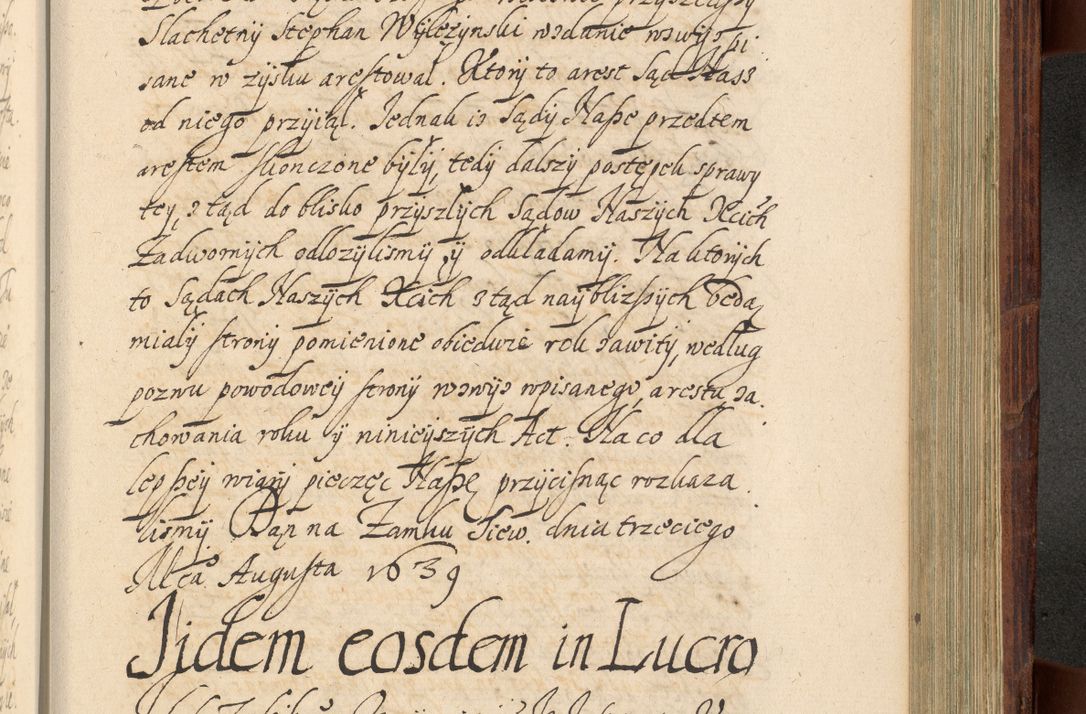 Slachetny Stephan Wylezynski wzdanie wzwyż pi
sane w zysku arestował. Ktory to arest Sąd Nasz
od niego przyiął. Jednak iż Sądy Naße przedtem
arestem skonczone były, tedy dalszy postępek sprawy
tey, ztąd do blisko przyszłych Sądow Naszych Xcich
Zadwornych odlozylismy y odkładamy. Na ktorych
to Sądach Naszych Xcich ztąd nayblizßych będą
miały strony pomienione obiedwie rok zawity, według
pozwu powodowey strony wzwyż wpisanego, arestu, za
chowania roku y ninieyszych Act. Na co dla
lepßey wiary pieczęc Naßę przycisnąc rozkaza
lismy Dąn na Zamku Siew. dnia trzeciego
Mca Augusta 1639
Iidem eosdem in Lucro